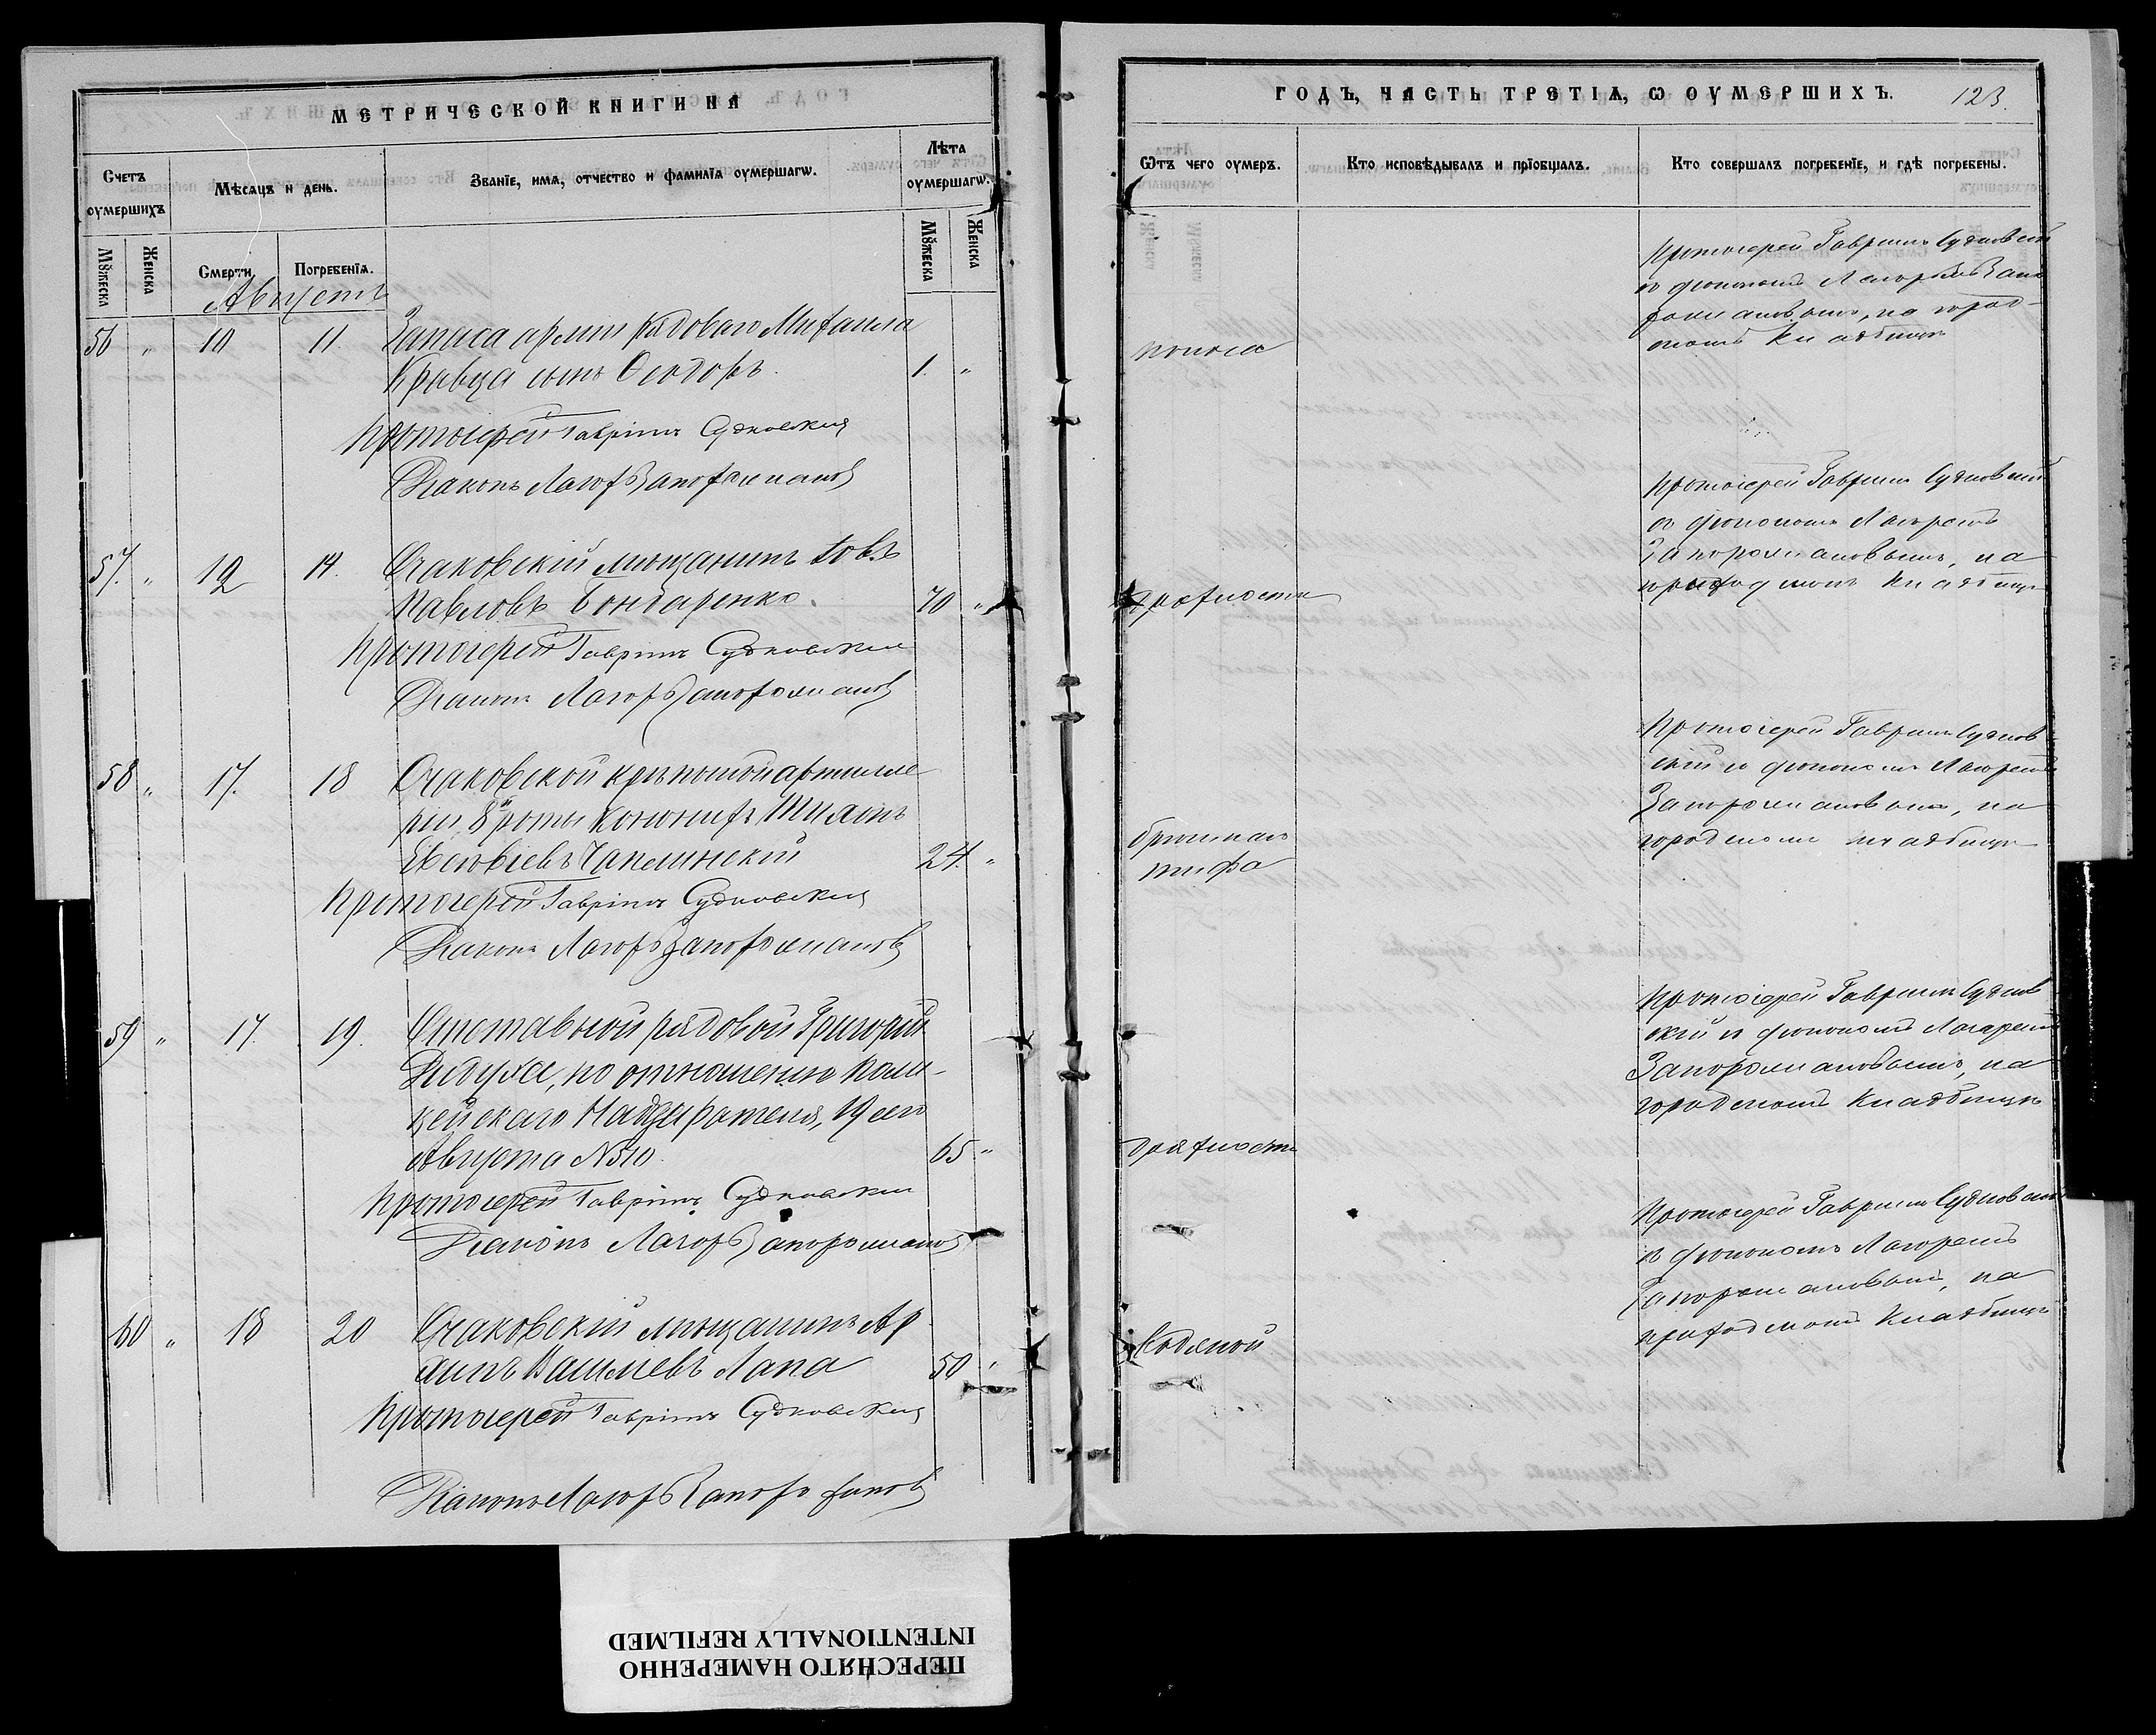 МЕТРИЧЕСКОЙ КНИГИ НА
Счетъ оумершихъ
Мѣсяцъ и день.
Званїе, имя, отчество и фамилїя оумершагѡ.
Лѣта оумершагѡ.
Мꙋжеска
Женска
Смерти.
Погребенїя.
Мꙋжеска
Женска
Августъ
56 " 10 11. Запаса армии рядоваго Михаила
Кравца сынъ Ѳеодоръ. 1. "
Протоіерей Гавріилъ Судковскій
Діаконъ Лагоръ Запорожановъ
57. " 12 14. Очаковскій мѣщанинъ Іовъ
Павловъ Бондаренко. 70 "
Протоіерей Гавріилъ Судковскій
Діаконъ Лагоръ Запорожановъ
58 " 17. 18 Очаковской крѣпостной артилле
ріи 8й роты канониръ Тихонъ
Евсевіевъ Чаплинскій 24. "
Протоіерей Гавріилъ Судковскій
Діаконъ Лагоръ Запорожановъ
59 " 17. 19. Отставной рядовой Григорій
Дидуха, по отношенію Поли-
цейскаго Надзирателя, 19 сего
Августа № 510. 65 "
Протоіерей Гавріилъ Судковскій
Діаконъ Лагоръ Запорожановъ
60 " 18 20 Очаковскій мѣщанинъ
Васильевъ Лапа 50 "
Протоіерей Гавріилъ Судковскій
Діаконъ Лагоръ Запорожановъ
ГОДЪ, ЧАСТЬ ТРЕТІѦ, Ѡ ОУМЕРШИХЪ.
123.
Ѿтъ чего оумеръ.
Кто исповѣдывалъ и прїобщалъ.
Кто совершалъ погребенїе, и гдѣ погребены.
поноса
Протоіерей Гавріилъ Судковскій
съ діакономъ Лагоремъ Запо
рожановымъ, на город-
скомъ кладбищѣ
дряхлости
Протоіерей Гавріилъ Судковскій
съ діакономъ Лагоремъ
Запорожановымъ, на
приходскомъ кладбищѣ
брюшнаго
тифа
Протоіерей Гавріилъ Судков
скій съ діакономъ Лагоремъ
Запорожановымъ, на
городскомъ кладбищѣ
дряхлости
Протоіерей Гавріилъ Судков
скій съ діакономъ Лагоремъ
Запорожановымъ, на
городскомъ кладбищѣ
водяной
Протоіерей Гавріилъ Судковскій
съ діакономъ Лагоремъ
Запорожановымъ, на
приходскомъ кладбищѣ
ПЕРЕСНЯТО НАМЕРЕННО
INTENTIONALLY REFILMED